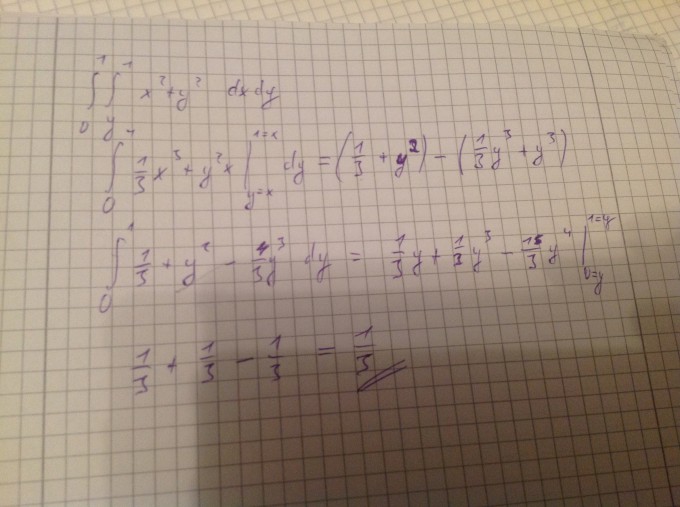 ∫₀¹ ∫ᵧ¹ x² + y² dx dy
∫₀¹ 1/3 x³ + y²x |_{y=x}^{1=x} dy = (1/3 + y²) − (1/3 y³ + y³)
∫₀¹ 1/3 + y² − 4/3 y³ dy = 1/3 y + 1/3 y³ − y⁴ |_{0=y}^{1=y}
1/3 + 1/3 − 1/3 = 1/3